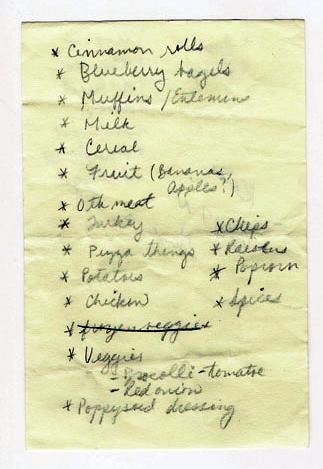 * Cinnamon rolls
* Blueberry bagels
* Muffins / Entemins
* Milk
* Cereal
* Fruit (Bananas,
Apples?)
* Oth meat
* Turkey
* Pizza things
* Potatoes
* Chicken
* frozen veggies
* Veggies
- Brocolli - tomatoe
- Red onion
* Poppyseed dressing
* Chips
* Raisins
* Popcorn
* Spices